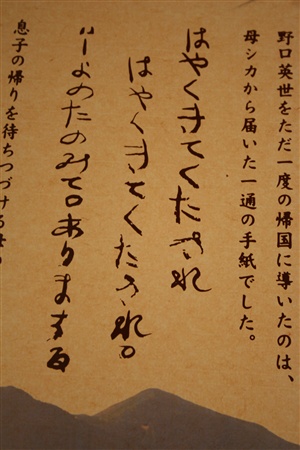 野口英世をただ一度の帰国に導いたのは、
母シカから届いた一通の手紙でした。
はやくきてくたされ
はやくきてくたされ。
いしよのたのみてありまする
息子の帰りを待ちつづける